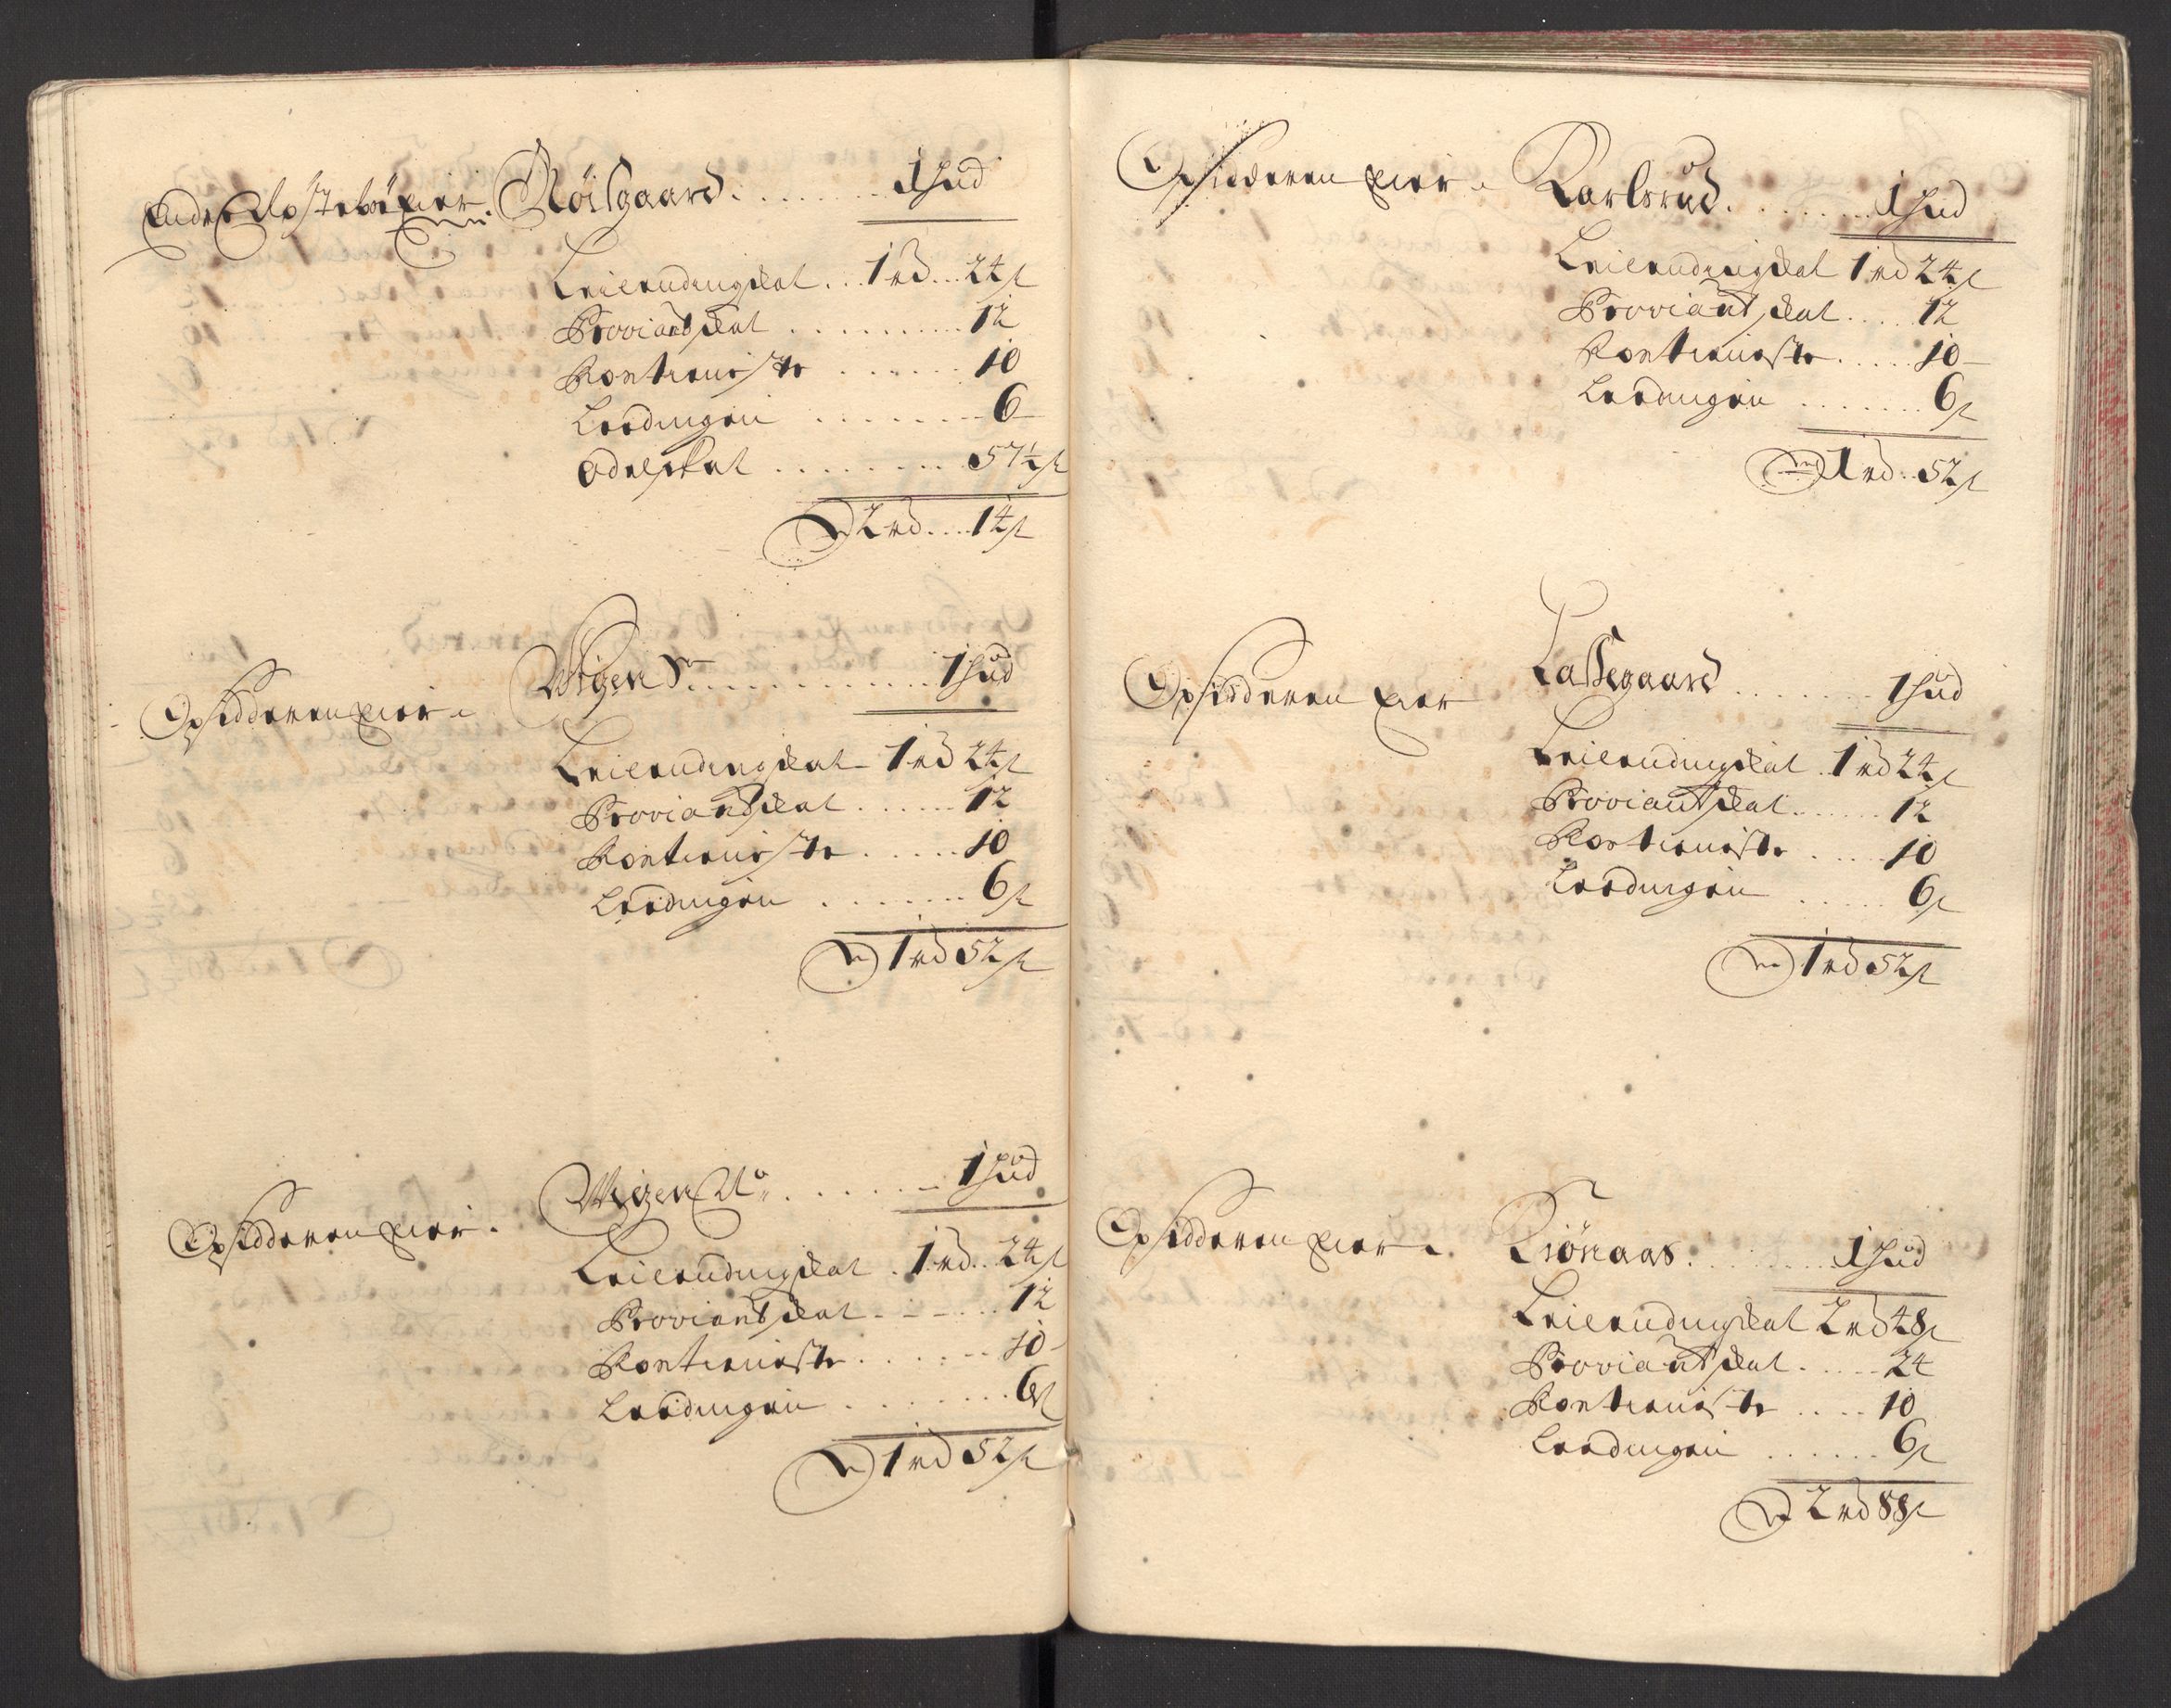 Endre Opstebøe Eier. Røilgaard. . . . . . . . 1 hud
Leilendingskat . . . 1 rd . . . 24 s
Proviantskat . . . . . . . . . . 12
Rostieniste . . . . . . . 10
Leedingen . . . . . . . . 6
Odelskat . . . . . . . . . 57½ s
2 rd . . . 14 s
Opsidderen eier Wigen . . . . . . . . . . . . 1 hud
Leilendingskat 1 rd 24 s
Proviantskat . . . . . . 12
Rostieniste . . . . . . 10
Leedingen . . . . . . . 6 s
1 rd 52 s
Opsidderen eier. Wigen . . . . . . . 1 hud
Leilendingskat . 1 rd . . 24 s
Proviantskat . . . . . . 12
Rostieniste . . . . . . 10
Leedingen . . . . . . . . 6 s
1 rd 52 s
Opsidderen eier Karlsrud. . . . . . . . 1 hud
Leilendingskat 1 rd 24 s
Proviant skat . . . . 12
Rostieniste . . . . . 10
Leedingen . . . . . . . 6 s
1 rd . . 52 s
Opsidderen eier Lassegaard . . . . . . . . 1 hud
Leilendingskat . 1 rd 24 s
Proviantskat . . . . . . 12
Rostieniste . . . . 10
Leedingen . . . . . 6 s
1 rd 52 s
Opsidderen eier Kiønaas. . . . . . . . 1 hud
Leilendingskat 2 rd 48 s
Proviantskat . . . . . 24
Rostieniste . . . . 10
Leedingen . . . . . . 6 s
2 rd 88 s